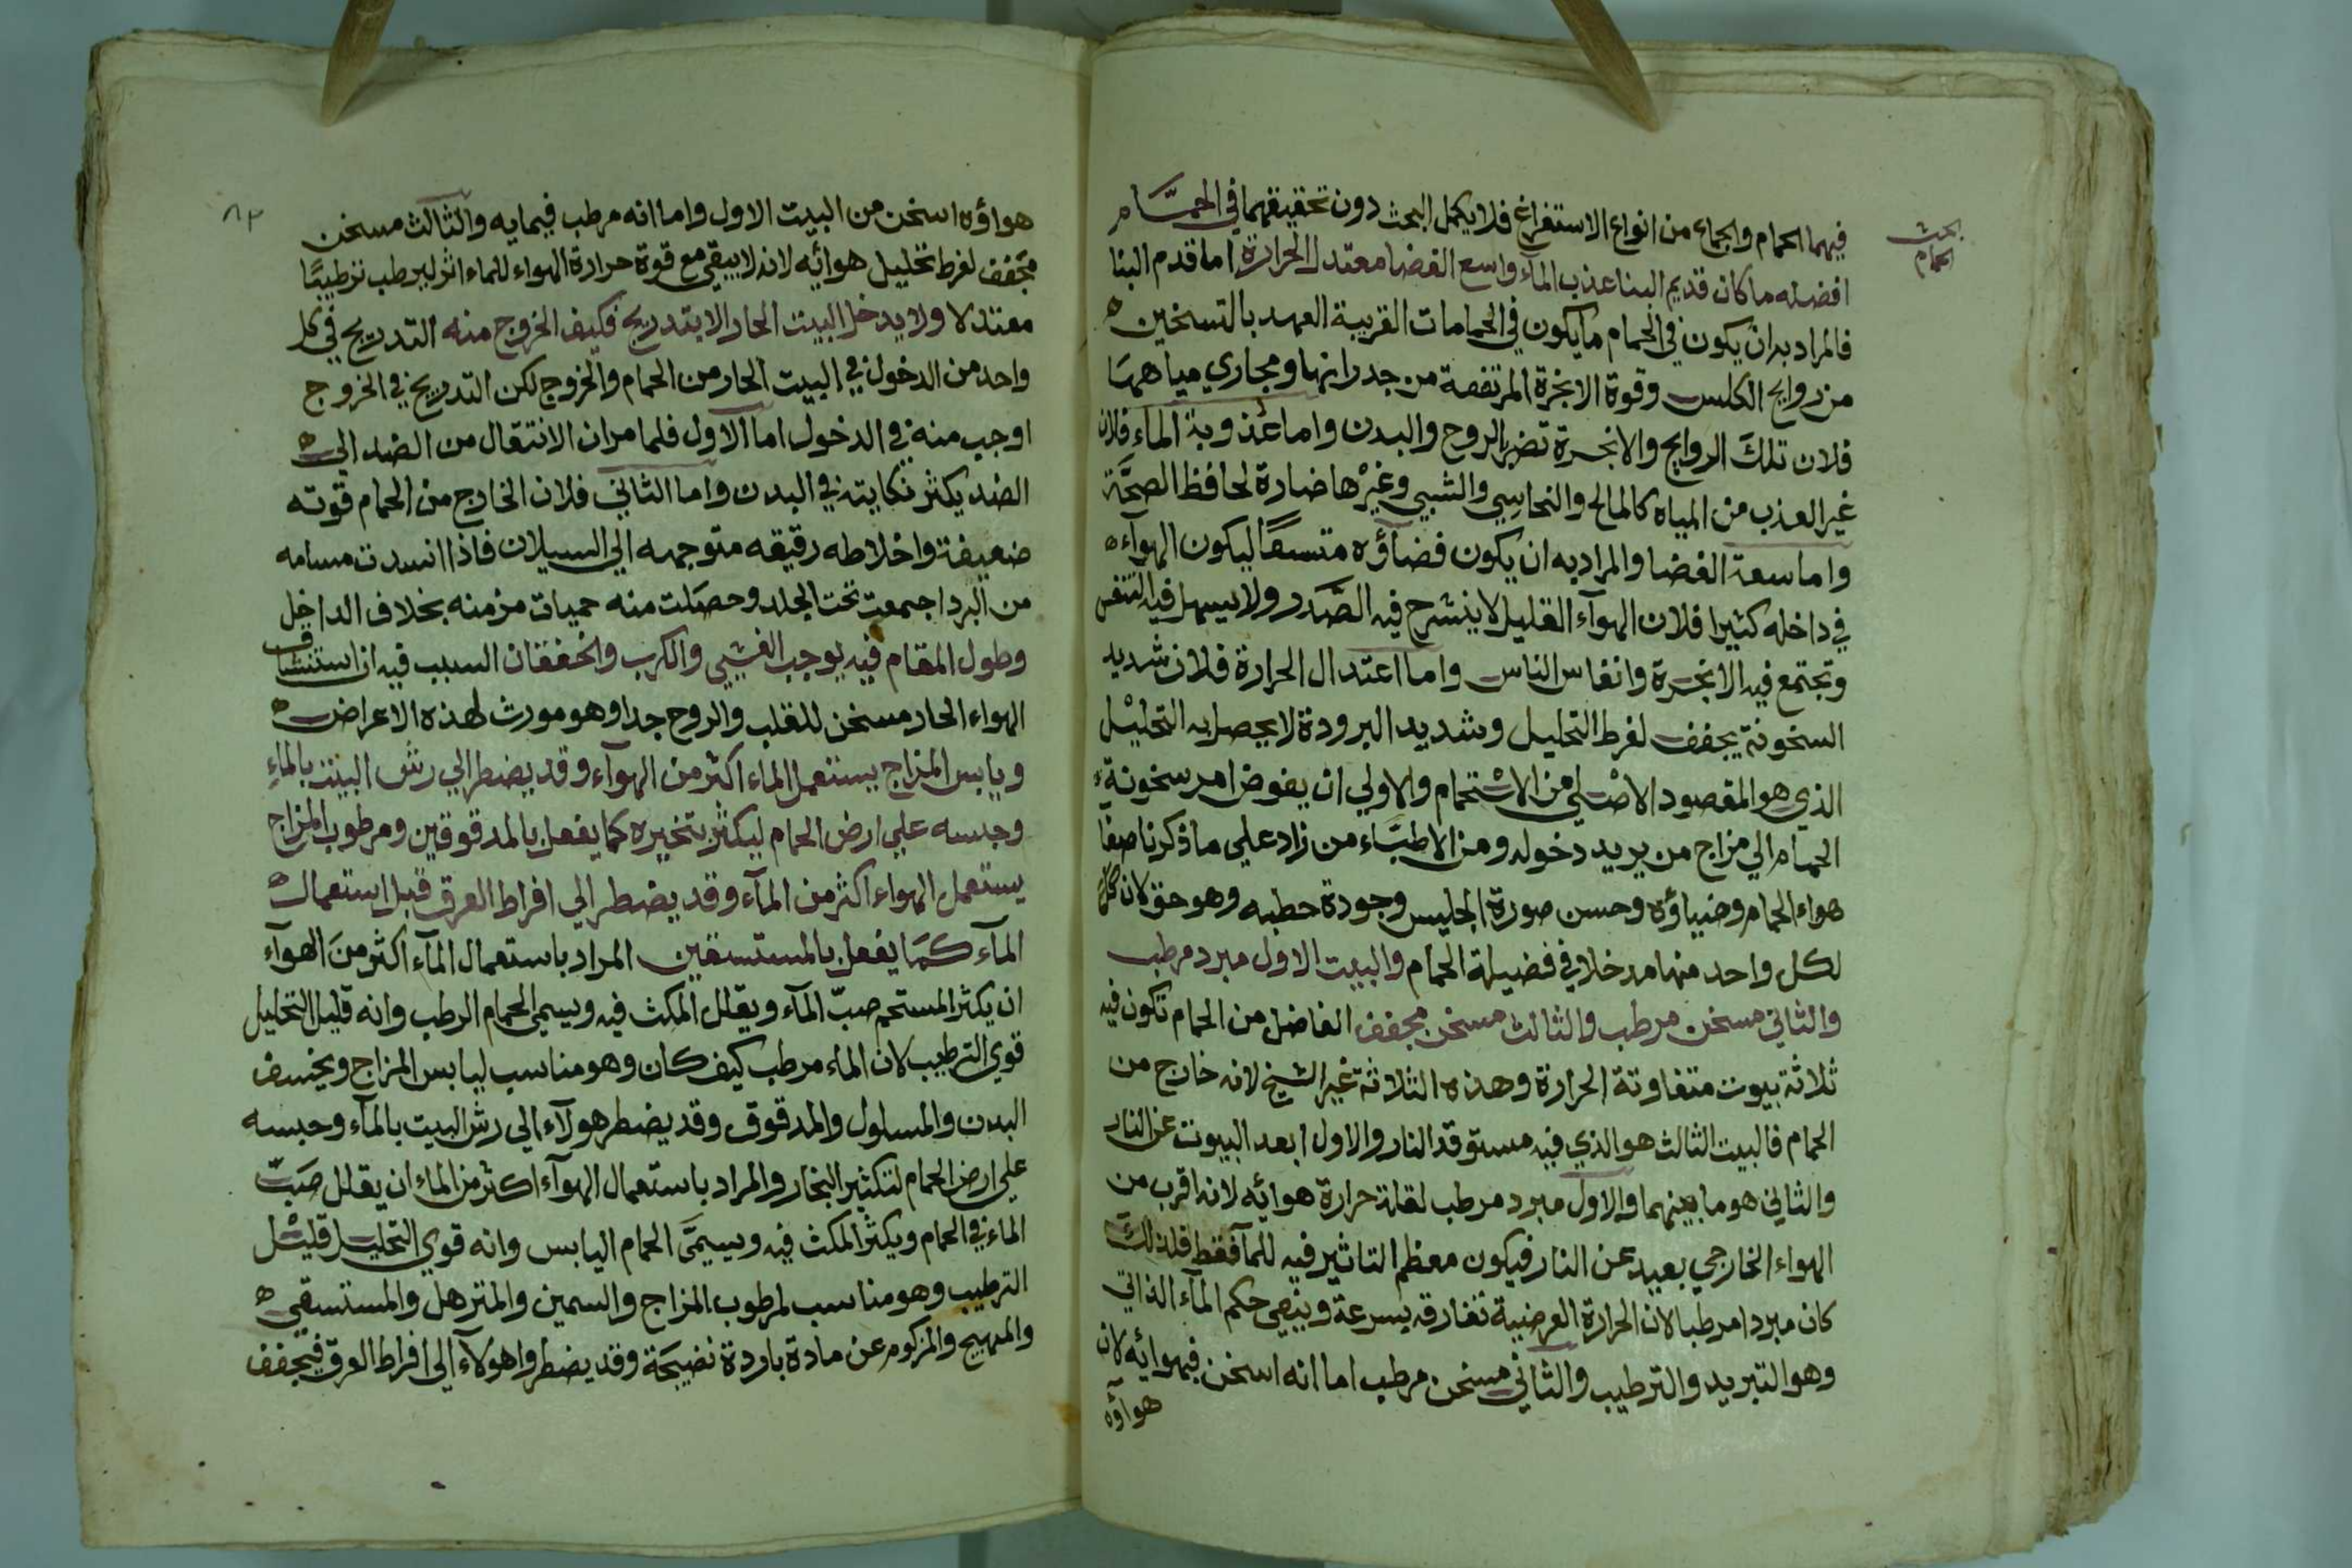 بحث
الحمام
فيهما الحمام والجماع من انواع الاستفراغ فلا يكمل البحث دون تحقيقهما في الحمَّام
افضله ما كان قديم البنا عذب المآء واسع الفضا معتدل الحرارة اما قدم البنا
فالمراد به ان يكون في الحمام ما يكون في الحمامات القريبة العهد بالتسخين ه
من روايح الكلس وقوة الابخرة المرتفعة من جدرانها ومجاري مياهها
فلان تلك الروايح والابخرة تضر الروح والبدن واما عذوبة الماء فلان
غير العذب من المياه كالمالح والنحاسي والشبي وغيرها ضارة لحافظ الصحَّة
واما سعة الفضا والمراد به ان يكون فضآؤه متسعًا ليكون الهواء ه
في داخله كثيرا فلان الهوآء القليل لا ينشرح فيه الصَّدر ولا يسهل فيه التنفس
وتجتمع فيه الابخرة وانفاس الناس واما اعتدال الحرارة فلان شديد
السخونة يجفف لفرط التحليل وشديد البرودة لا يحصل به التحليل
الذي هو المقصود الاصلي من الاستحمام والاولي ان يفوض امر سخونة
الحمام الي مزاج من يريد دخوله ومن الاطبَّاء من زاد علي ما ذكرنا صفا
هواء الحمام وضياؤه وحسن صورة الجليس وجودة حطبه وهو حق لان كل
لكل واحد منها مدخلا في فضيلة الحمام والبيت الاول مبرد مرطب
والثاني مسخن مرطب والثالث مسخن مجفف الفاضل من الحمام تكون فيه
ثلاثة بيوت متفاوتة الحرارة وهذه الثلاثة غير الشيخ لانه خارج من
الحمام فالبيت الثالث هو الذي فيه مستوقد النار والاول ابعد البيوت عن النار
والثاني هو ما بينهما والاول مبرد مرطب لقلة حرارة هوائه لانه اقرب من
الهواء الخارجي بعيد عن النار فيكون معظم التاثير فيه للمآ فقط فلذلك
كان مبردا مرطبا لان الحرارة العرضية تفارقه بسرعة وينهي حكم المآء الذاتي
وهو التبريد والترطيب والثاني مسخن مرطب اما انه اسخن فبهوائه لان
هوآؤه
٨٣
هواؤه اسخن من البيت الاول واما انه مرطب فبمايه والثالث مسخن
مجفف لفرط تحليل هوائه لانه لا يبقي مع قوة حرارة الهواء للماء اثر ليرطب ترطيبًا
معتدلا ولا يدخل البيت الحار الا بتدريج فكيف الخروج منه التدريج في كل
واحد من الدخول في البيت الحار من الحمام والخروج لكن التدريج في الخروج
اوجب منه في الدخول اما الاول فلما مر ان الانتقال من الضد الي ه
الضد يكثر نكايته في البدن واما الثاني فلان الخارج من الحمام قوته
ضعيفة واخلاطه رقيقه متوجهه الي السيلان فاذا انسدت مسامه
من البرد اجمعت تحت الجلد وحصلت منه حميات مزمنه بخلاف الداخل
وطول المقام فيه يوجب الغشي والكرب والخفقان السبب فيه ان استنشاق
الهواء الحار مسخن للقلب والروح جدا وهو مورث لهذه الاعراض ه
ويابس المزاج يستعمل الماء اكثر من الهوآء وقد يضطر الي رش البيت بالماء
وحبسه علي ارض الحمام ليكثر بتخيره كما يفعل بالمدقوقين ومرطوب المزاج
يستعمل الهواء اكثر من المآء وقد يضطر الي افراط العرق قبل استعمال ه
المآء كما يفعل بالمستسقين المراد باستعمال المآء اكثر من الهوآء
ان يكثر المستحم صبّ المآء ويقلل المكث فيه ويسمي الحمام الرطب وانه قليل التحليل
قوي الترطيب لان الماء مرطب كيف كان وهو مناسب ليابس المزاج
البدن والمسلول والمدقوق وقد يضطر هولآء الي رش البيت بالمآء وحبسه
علي ارض الحمام لتكثير البخار والمراد باستعمال الهوآء اكثر من الماء ان يقلل صبّ
الماء في الحمام ويكثر المكث فيه ويسمَّى الحمام اليابس وانه قوي التحليل قليل
الترطيب وهو مناسب لمرطوب المزاج والسمين والمترهل والمستسقي ه
والمهيج والمزكوم عن مادة باردة نضيجة وقد يضطروا هولآء الي افراط العرق فيجفف